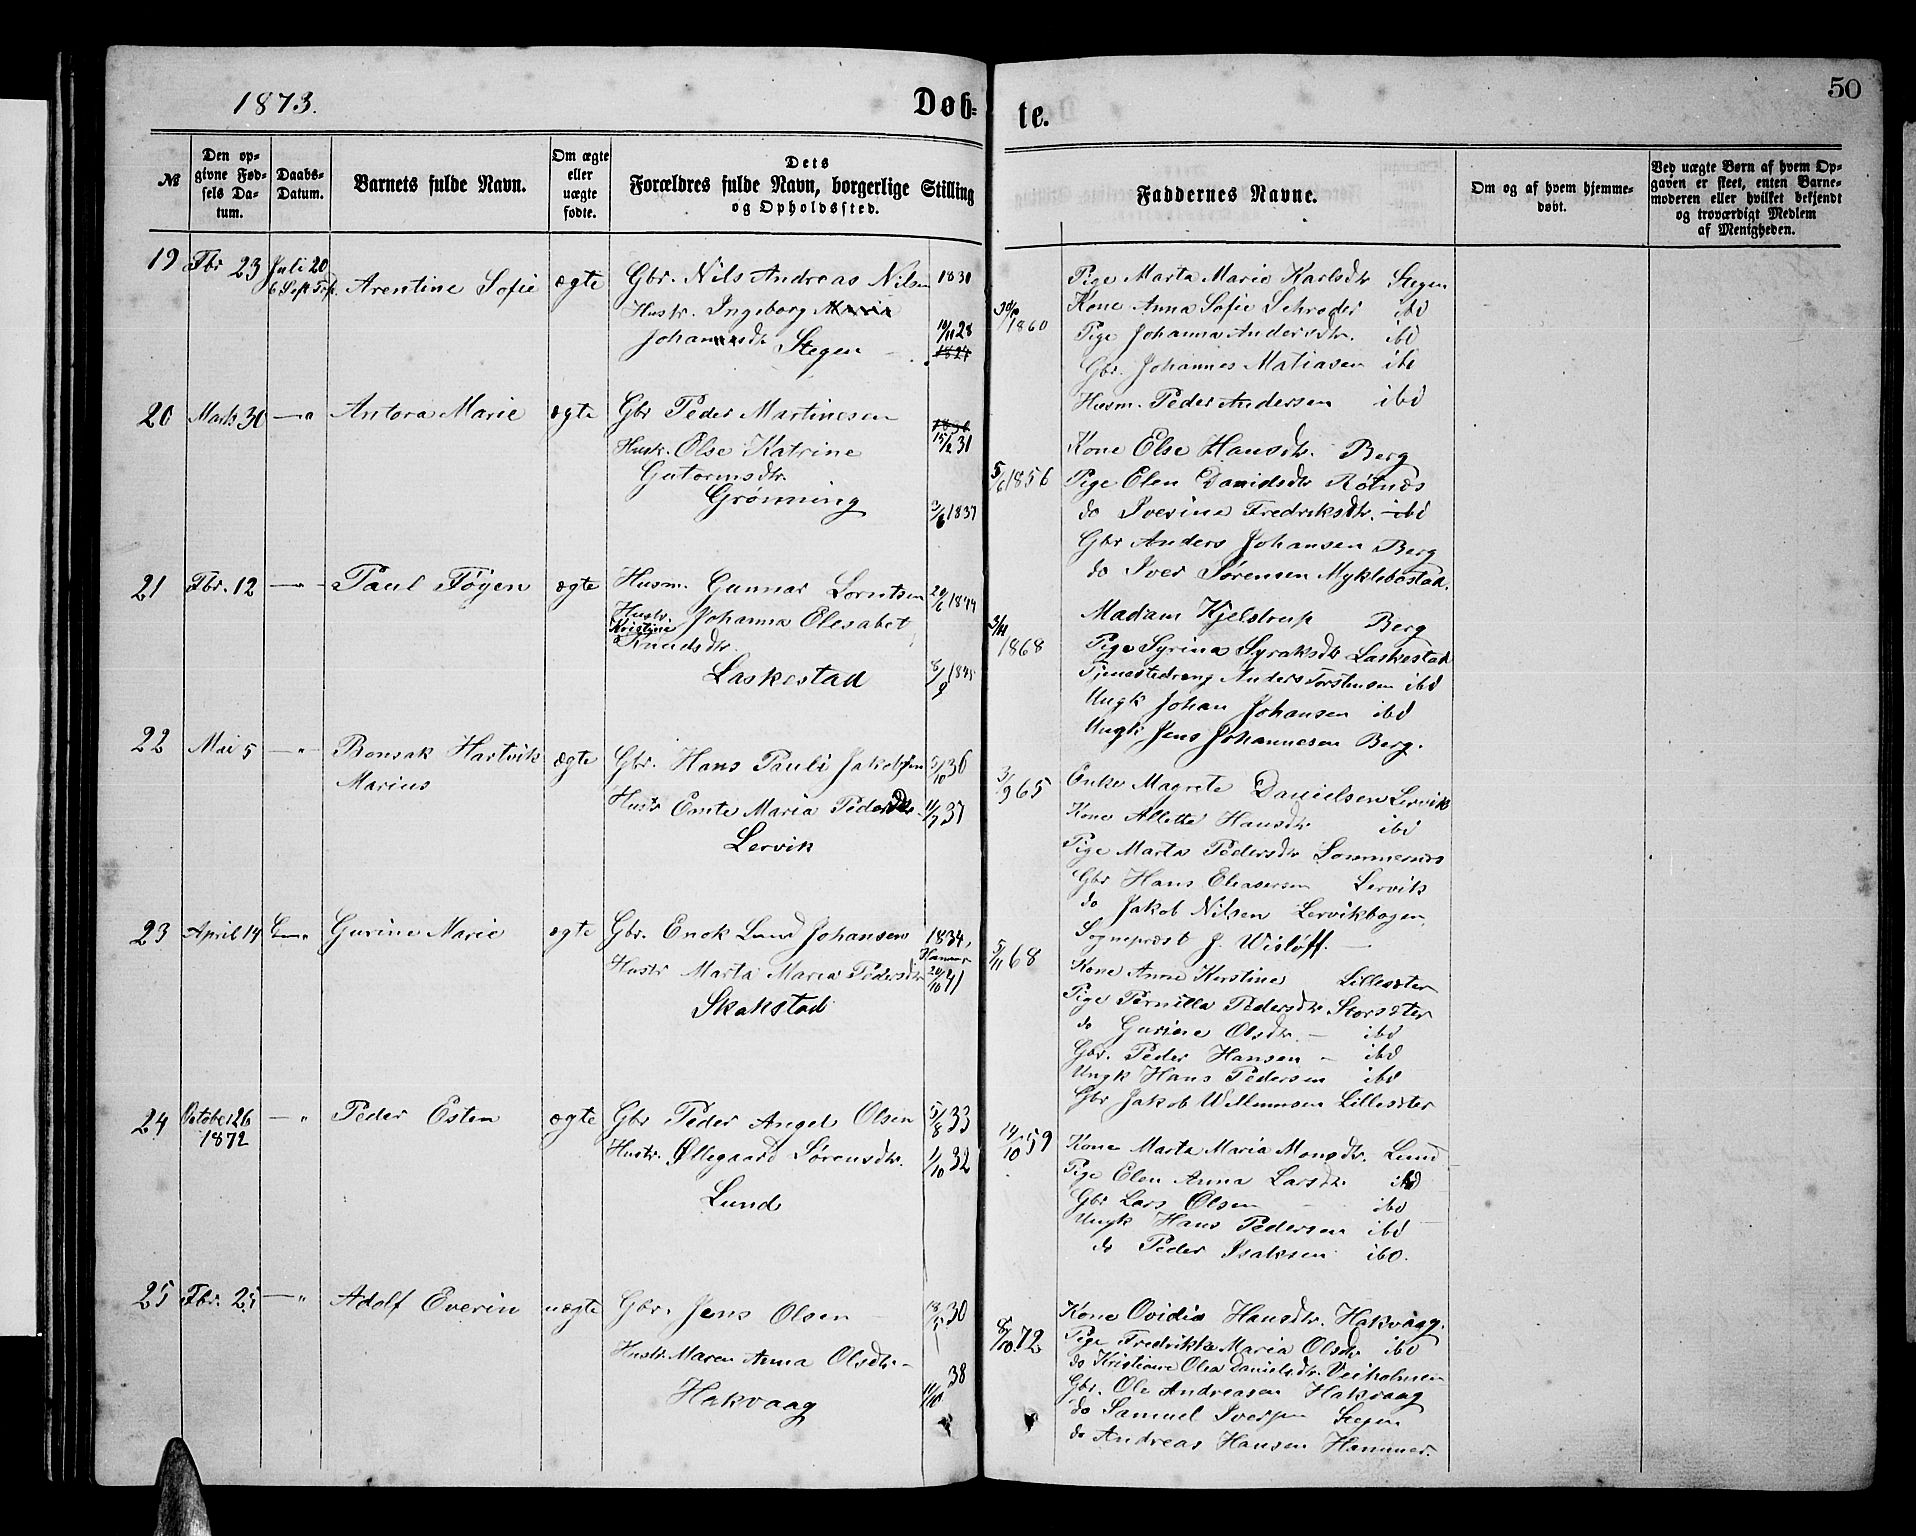 1873.
Døb-
te.
50
№
Den op-
givne Fød-
sels Da-
tum.
Daabs-
Datum.
Barnets fulde Navn.
Om ægte
eller
uægte
fødte.
Dets
Forældres fulde Navn, borgerlige Stilling
og Opholdssted.
Faddernes Navne.
Om og af hvem hjemme-
døbt.
Ved uægte Børn af hvem Op-
gaven er skeet, enten Barne-
moderen eller hvilket bekjendt
og troværdigt Medlem
af Menigheden.
19 Fbr 23 Juli 20 Arentine Sofie ægte
Gbr. Nils Andreas Nilsen 1830
Hustr. Ingeborg Maria
Johannsdtr Stegen 10/11 28
1827
30/10 1860
Pige Marta Marie Karlsdtr Stegen
Kone Anna Sofie Schrøder ibd
Pige Johanna Andersdtr. ibd
Gbr. Johannes Matiasen ibd
Husm. Peder Andersen ibd
20 Marts 30 —" Antora Marie ægte
Gbr Peder Martinesen 1830
15/2 31
Hustr. Olse Katrine
Gutormsdtr
Grønning 3/6 1837
5/6 1856
Kone Else Hansdtr. Berg
Pige Elen Danidsdtr Røtnæs
do Iverine Fredriksdtr. ibd
Gbr Anders Johansen Berg
do Iver Sørensen Myklebostad.
21 Fbr. 12 —" Paul Føyen ægte
Husm. Gunnar Lorntsen 20/6 1844
Hustr. Johanna Elesabet
Kristine
Knudsdtr.
Laskestad 8/9 1845
3/11 1868
Madam Kjelstrup Berg
Pige Syrina Syraksdtr Laskestad
Tjenestedreng Anders Torstensen ibd
Ungk Johan Johansen ibd
Ungk Jens Johannesen Berg.
22 Mai 5 —" Bonsak Hartvik ægte
Marius
Gbr. Hans Pauli Jakobsen 5/10 36
Hustr Emte Maria Pedersdtr 11/7 37
Lervik
3/9 65
Enke Magrete Danielsen Lervik
Kone Allette Hansdtr ibd
Pige Marta Pedersdtr Sommernæs
Gbr Hans Eleasersen Lervik
do Jakob Nilsen Lervikbogen
Sognepræst J. Wisløff.
23 April 14 —" Gurine Marie ægte
Gbr. Enok Lund Johansen 1834,
Hustr Marta Maria Pedersdtr Hammer 20/10 41
Skakstad
5/11 68
Kone Anne Kirstine Lillesæter
Pige Pernilla Pedersdtr Storsæter
do Gurine Olsdtr. — ibd
Gbr. Peder Hansen — ibd
Ungk Hans Pedersen ibd
Gbr Jakob Willumsen Lillesæter
24 October 26 —" Peder Esten ægte
1872
Gbr Peder Angel Olsen 5/8 33
Hustr. Øllegaard Sørensdtr. 1/10 32
Lund
14/10 59
Kone Marta Maria Monsdtr. Lund
Pige Elen Anna Larsdtr ibd
Gbr Lars Olsen — ibd
Ungk Hans Pedersen ibd
do Peder Isaksen ibd.
25 Fbr. 25 —" Adolf Everin uægte
Gbr. Jens Olsen 18/5 30
Hustr. Maren Anna Olsdtr — 38
Hakvaag 11/10
8/10 72
Kone Ovidia Hansdtr. Hakvaag.
Pige Fredrikka Maria Olsdtr ibd
do Kristiane Olea Danielsdtr. Veiholmen
Gbr. Ole Andreasen Hakvaag
do Samuel Iversen Stegen
do Andreas Hansen Hammer.